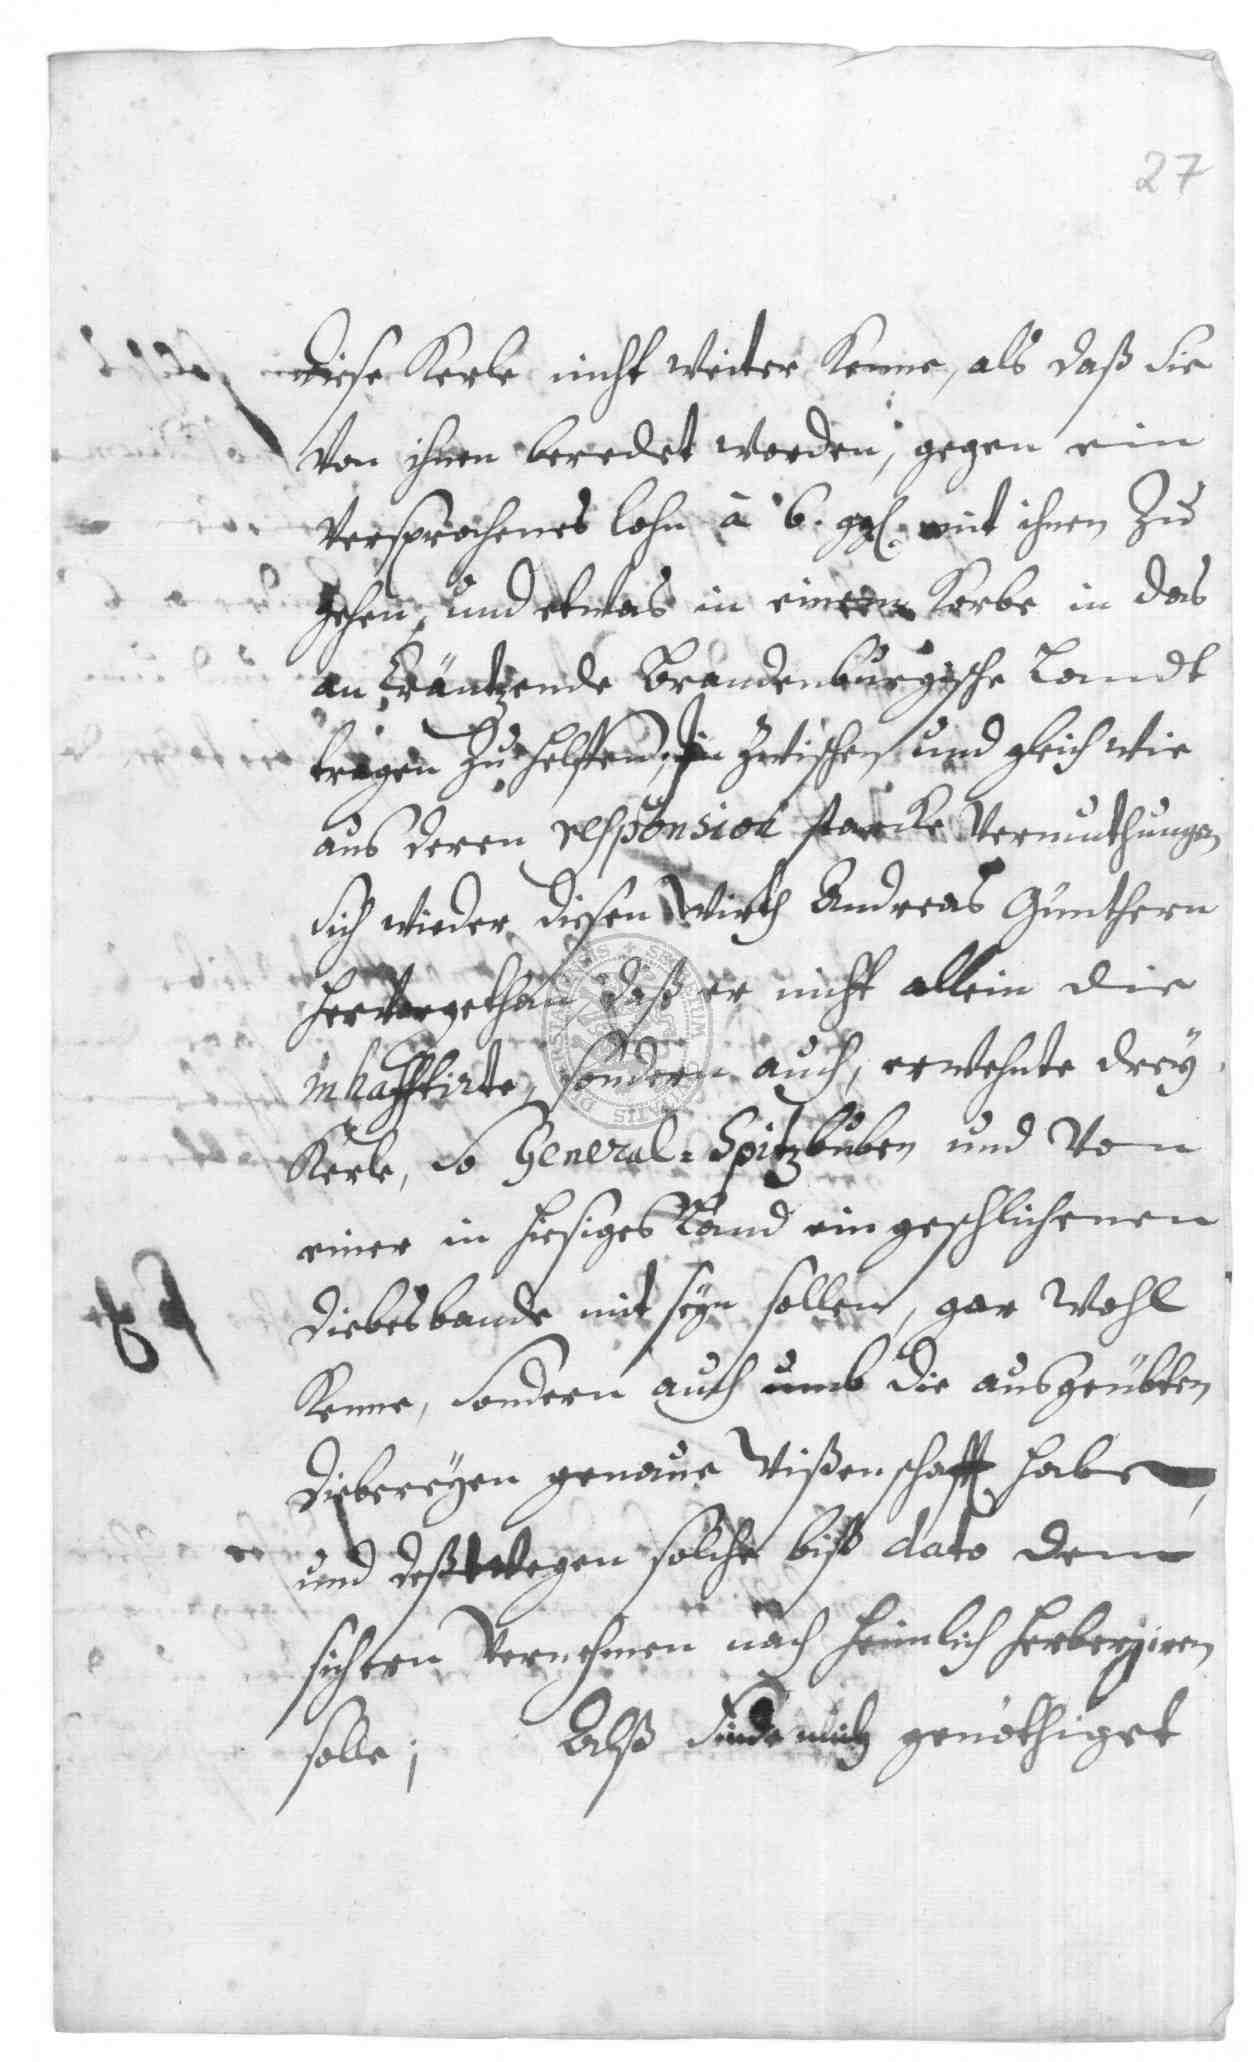 27
diese Kerle nicht weiter kenne, als daß sie
von ihnen beredet worden, gegen ein
versprochenes lohn à 6. ggl. mit ihnen zu
gehen, und etwas in einem Korbe in das
an kräntzende Brandenburgische Landt
tragen zu helffen, In zwischen und gleich wie
aus deren responsion starcke Vermuthungen
sich wieder diesen Wirth Andreas Günthern
hervorgethan, daß er nicht allein die
inhafftirte, sondern auch, erwehnte drey
Kerle, so General-Spitzbuben und von
einer in hiesiges Land eingeschlichenen
Diebesbande mit seyn sollen, gar wohl
kenne, sondern auch umb die ausgeübten
Diebereyen genaue Wißenschafft habe,
und deßwegen solche biß dato dem
sichern Vernehmen nach heimlich herbergiren
solle; Alß finde mich genöthiget